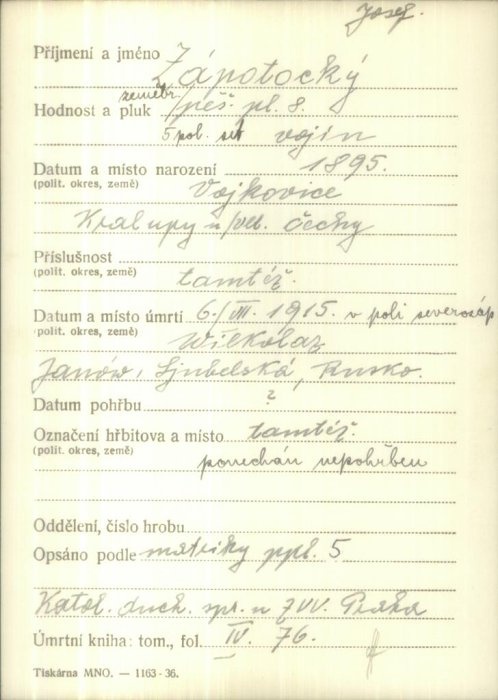 Josef.
Příjmení a jméno Zápotocký
zeměbr.
Hodnost a pluk /pěš. pl. 8.
5 pol. set vojín
Datum a místo narození 1895.
(polit. okres, země) Vojkovice
Kralupy n/vlt. Čechy
Příslušnost
(polit. okres, země) tamtéž.
Datum a místo úmrtí 6./VII. 1915. v poli severozáp
(polit. okres, země) Wilkolaz
Janów, Ljubelská, Rusko.
Datum pohřbu ?
Označení hřbitova a místo tamtéž.
(polit. okres, země)
ponechán nepohřben
Oddělení, číslo hrobu
Opsáno podle matriky ppl. 5
Katol. duch. spr. u ZVV. Praha
Úmrtní kniha: tom., fol. IV. 76.
Tiskárna MNO. — 1163-36.